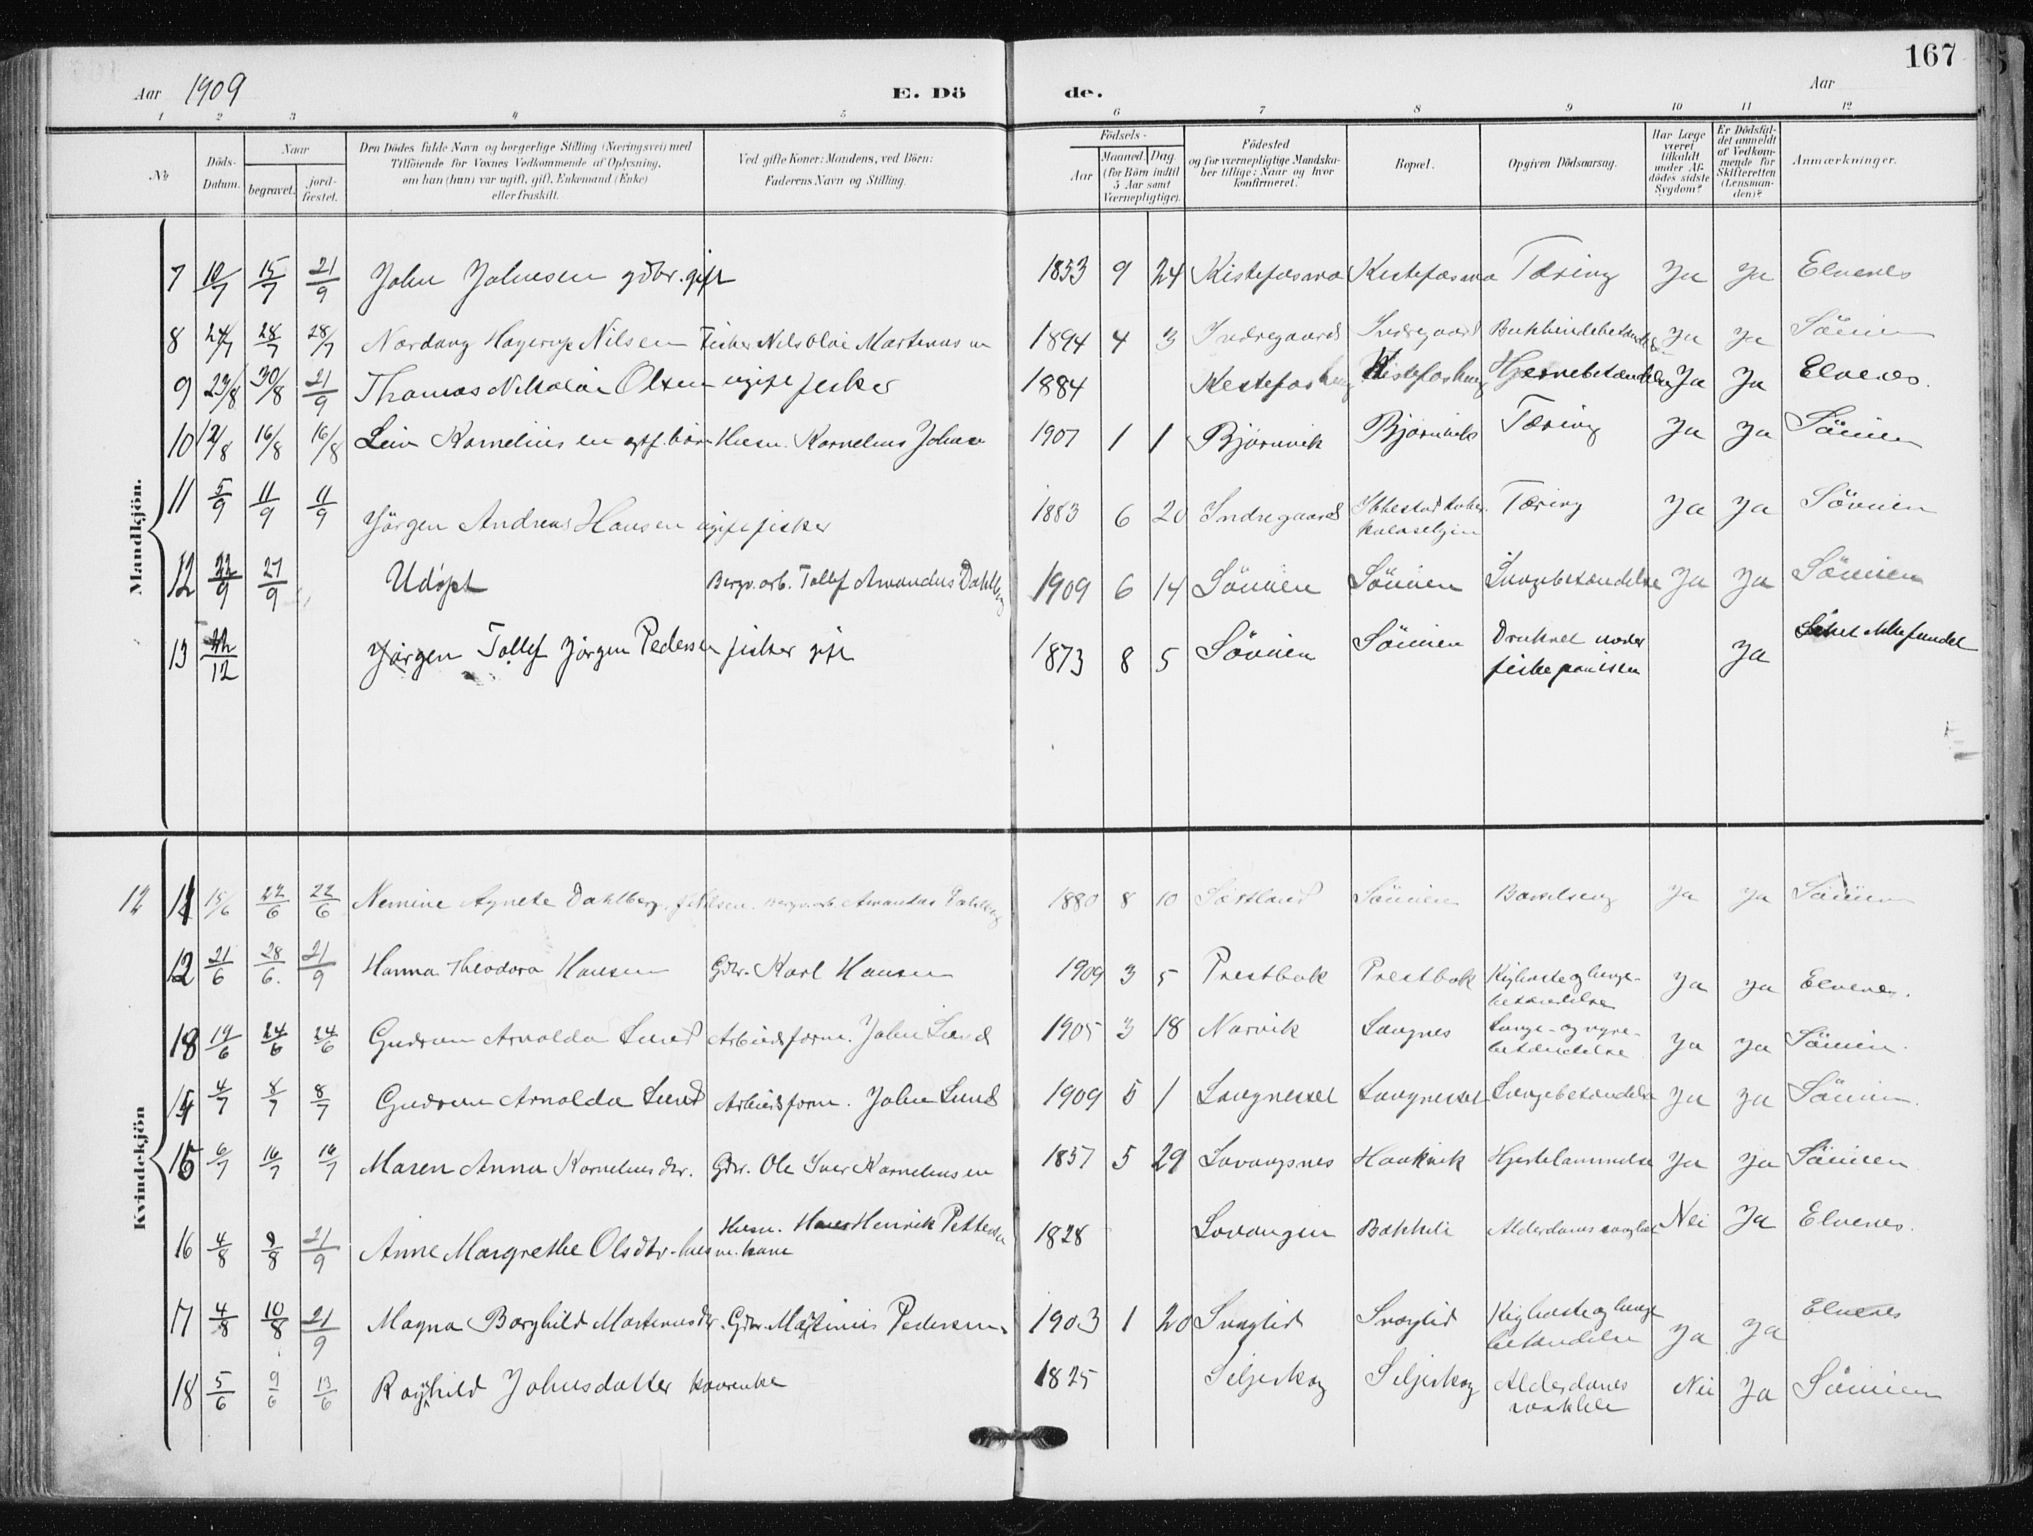 167
Aar 1909 E. Dö de. Aar
1 2 3 4 5 6 7 8 9 10 11 12
No
Döds-Datum.
Naar
begravet.
jord-fæstet.
Den Dödes fulde Navn og borgerlige Stilling (Næringsvei) med
Tilföiende for Voxnes Vedkommende af Oplysning,
om han (hun) var ugift, gift, Enkemand (Enke)
eller fraskilt.
Ved gifte Koner: Mandens, ved Börn:
Faderens Navn og Stilling.
Födsels-
Aar
Maaned. Dag
(for Börn indtil
5 Aar samt
Værnepligtige).
Födested
og for værnepligtige Mandska-
ber tillige: Naar og hvor
konfirmeret.
Bopæl.
Opgiven Dödsaarsag.
Har Læge
været
tilkaldt
under Af-
dödes sidste
Sygdom?
Er Dödsfal-
det anmeldt
af Vedkom-
mende for
Skifteretten
(Lensman-
den)?
Anmærkninger.
Mandkjön.
7 10/7 15/7 21/9 John Johnsen gdbr. gift 1853 9 24 Kistefosmo Kistefosmo Tæring Ja Ja Elvenes
8 24/7 28/7 28/7 Nordang Hagerup Nilsen Fisker Nils Olai Martinussen 1894 4 3 Indregaard Indregaard Ja Ja Sörvien
9 23/8 30/8 21/9 Thomas Nikolai Olsen ugift fisker 1884 Kistefoshaug Kistefoshaug Hjernebetændelse Ja Ja Elvenes.
10 12/8 16/8 16/8 Leiv Kornelius en Husm. Kornelius Johns 1907 1 1 Bjørnvik Bjørnvik Tæring Ja Ja Sörvien
11 5/9 11/9 11/9 Jörgen Andreas Hansen ugift fisker 1883 6 20 Indregaard Ibbestad Tæring Ja Ja Sörvien
12 22/9 27/9 Udøpt Bergv.arb. Tollef Amandus Dahlberg 1909 6 14 Sörvien Sörvien Lungebetændelse Ja Ja Sörvien
13 12 Jörgen Tollef Jörgen Pedersen fisker gift 1873 8 5 Sörvien Sörvien Druknet under Ja Liket ikke fundet
Kvindekjön
12 11 15/6 22/6 22/6 Nemine Agnete Dahlberg f. Nilsen. Bergv.arb. Amandus Dahlberg 1880 8 10 Sætland Sörvien Barselseng Ja Ja Sörvien
12 21/6 28/6. 21/9 Hanna Theodora Hansen Gdbr. Karl Hansen 1909 3 5 Prestbak Prestbak Kighoste og lunge-
betændelse Ja Ja Elvenes.
13 19/6 24/6 24/6 Gudrun Arnolda Lund Arbeidsform. John Lund 1905 3 18 Narvik Langnes Lunge- og nyre-
betændelse Ja Ja Sörvien.
14 4/7 8/7 8/7 Gudrun Arnolda Lund Arbeidsform. John Lund 1909 5 1 Langnesset Langnesset Lungebetændelse Ja Ja Sörvien.
15 6/7 16/7 16/7 Maren Anna Korneliusdtr. Gdbr. Ole Iver Korneliussen 1857 5 29 Lavangsnes Haukvik Hjertelammelse Ja Ja Sörvien
16 4/8 9/8 21/9 Anne Margrethe Olsdtr. husm. kone Husm. Henrik Pettersen 1828 Lavangen Bakkeli Alderdomssvaghet Nei Ja Elvenes.
17 4/8 10/8 21/9 Magna Borghild Martinusdtr. Gdbr. Martinus Pedersen 1903 1 20 Snoglid Snoglid Kighoste og lunge
betændelse Ja Ja Elvenes
18 5/6 9/6 13/6 Ragnhild Johnsdatter 1825 Seljeskog Seljeskog Alderdoms Nei Ja Sörvien